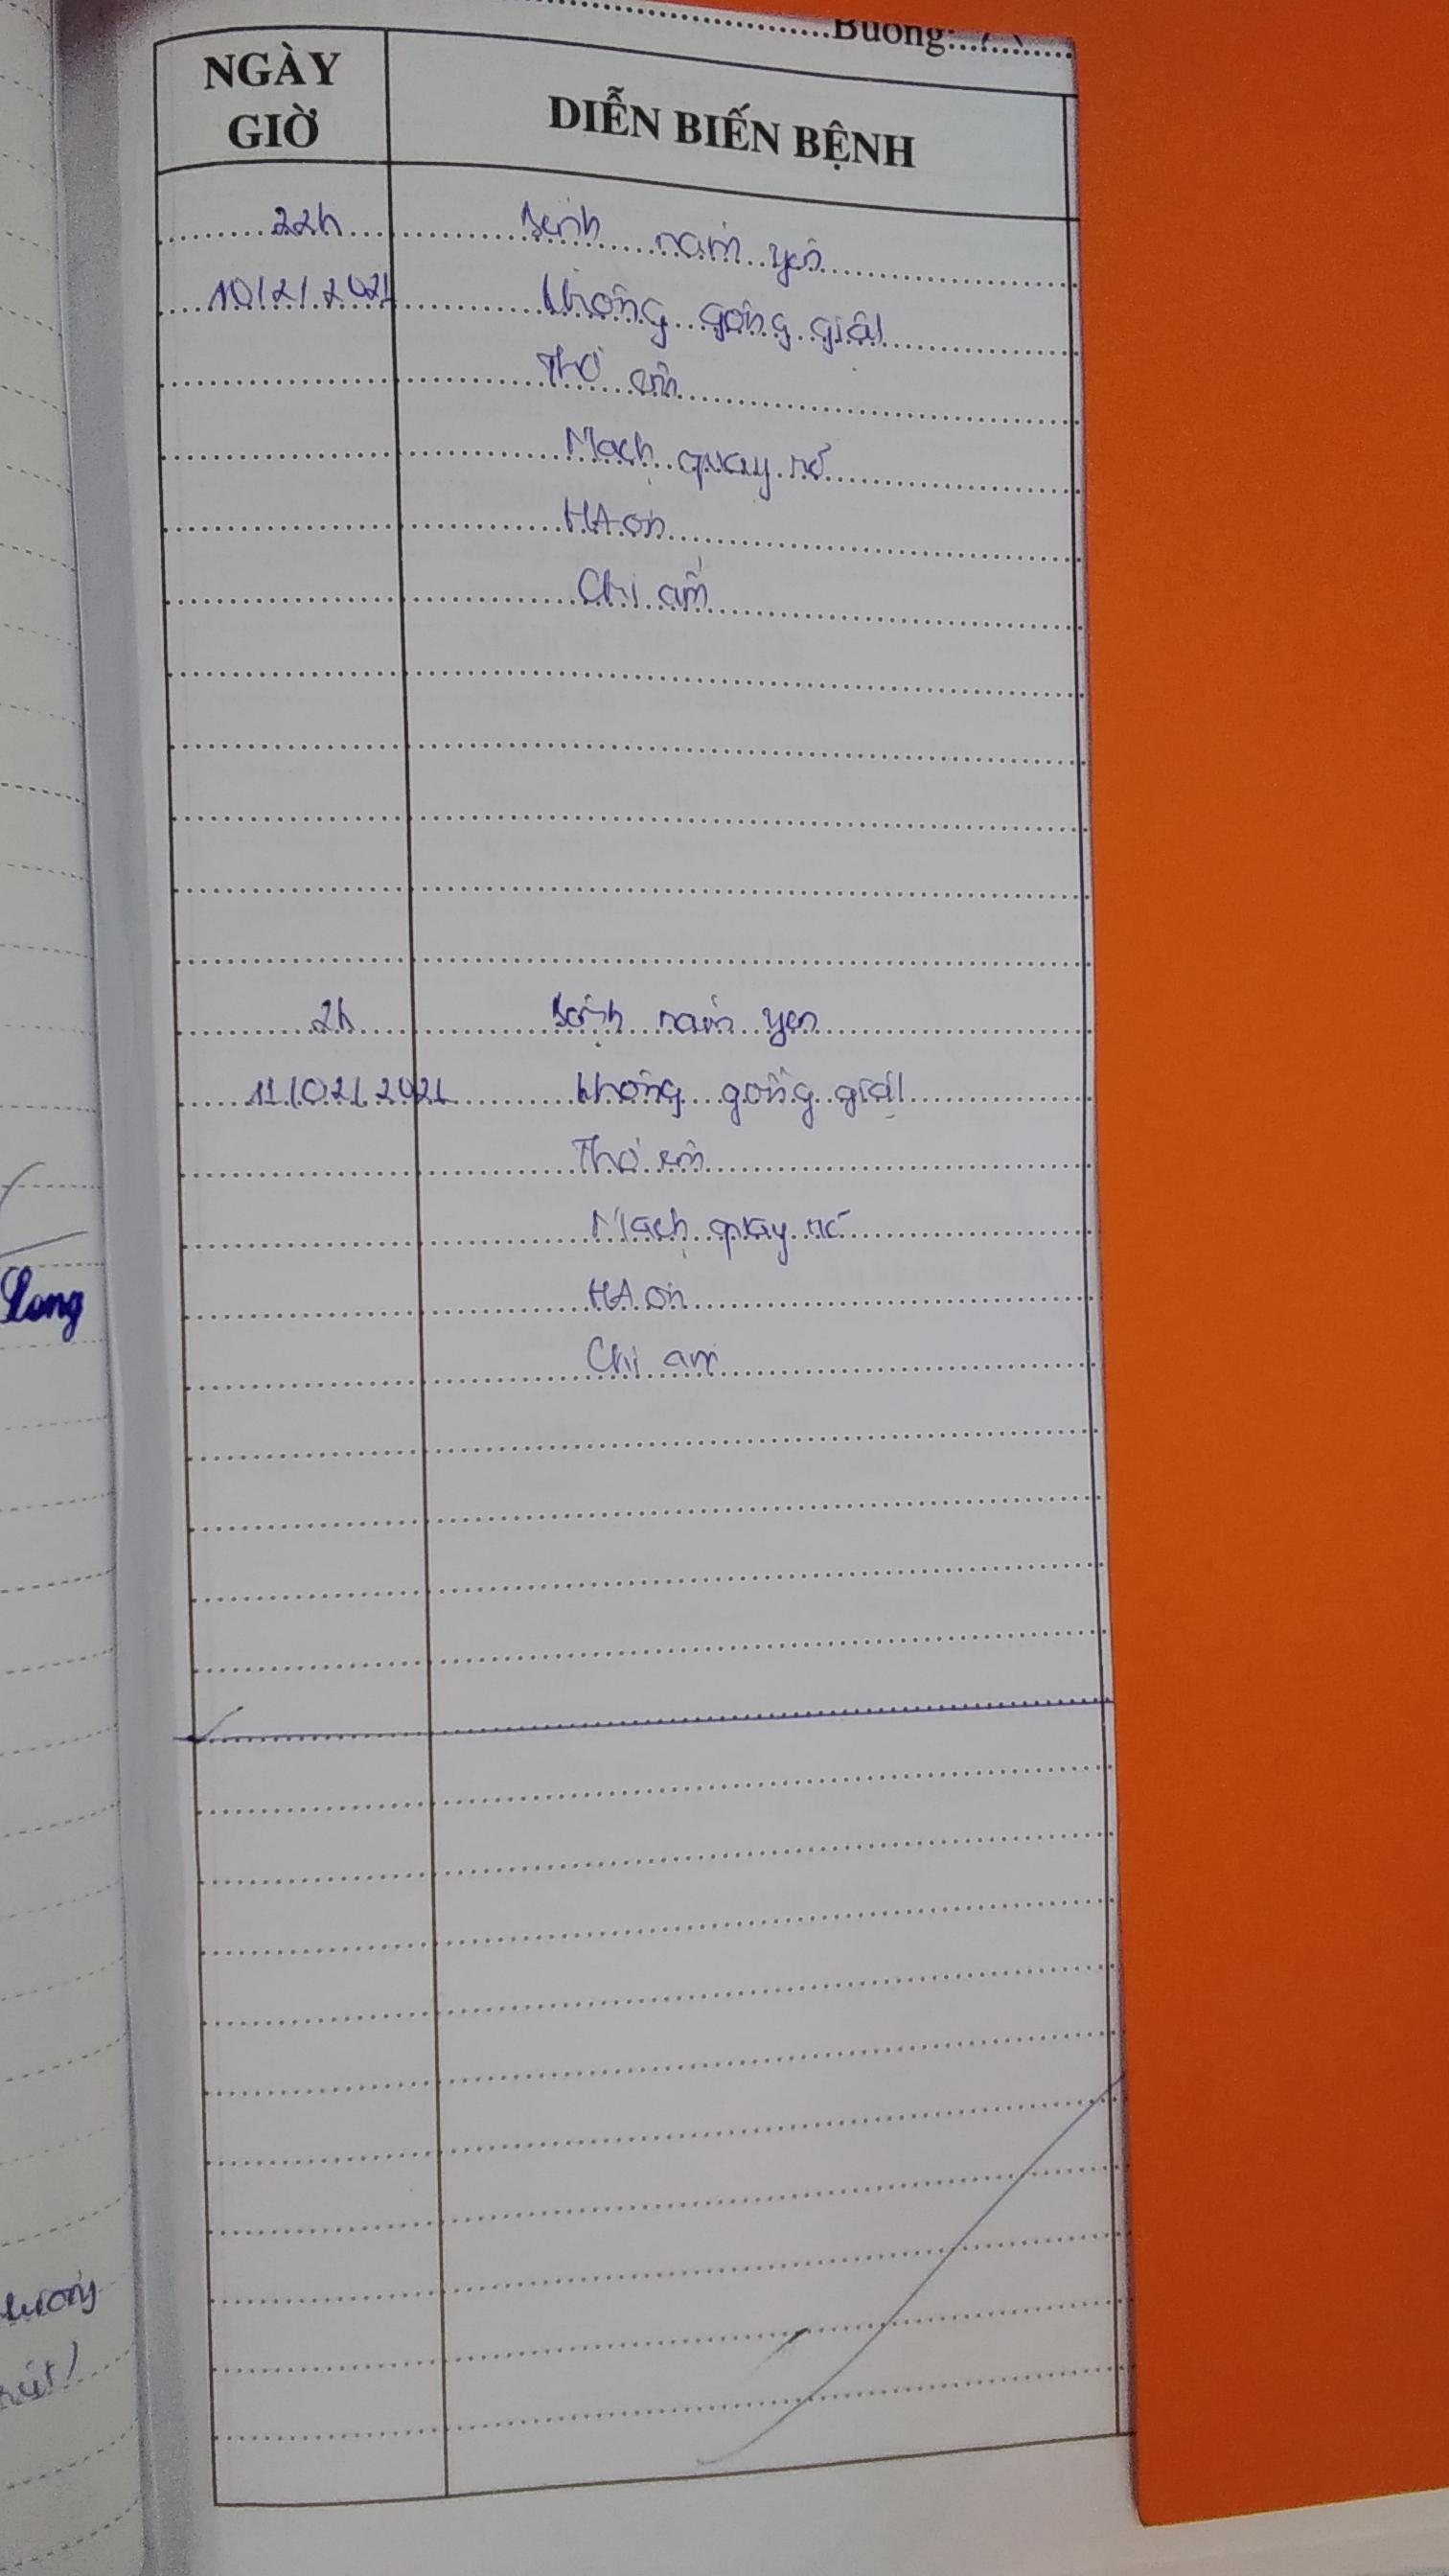 Buồng:
NGÀY
GIỜ
DIỄN BIẾN BỆNH
22h Bệnh nằm yên
10/2/2021 không gồng giật
Thở êm
Mạch quay rõ
HA ổn
Chi ấm
2h Bệnh nằm yên
11/02/2021 không gồng giật
Thở êm
Mạch quay rõ
HA ổn
Chi ấm
Long